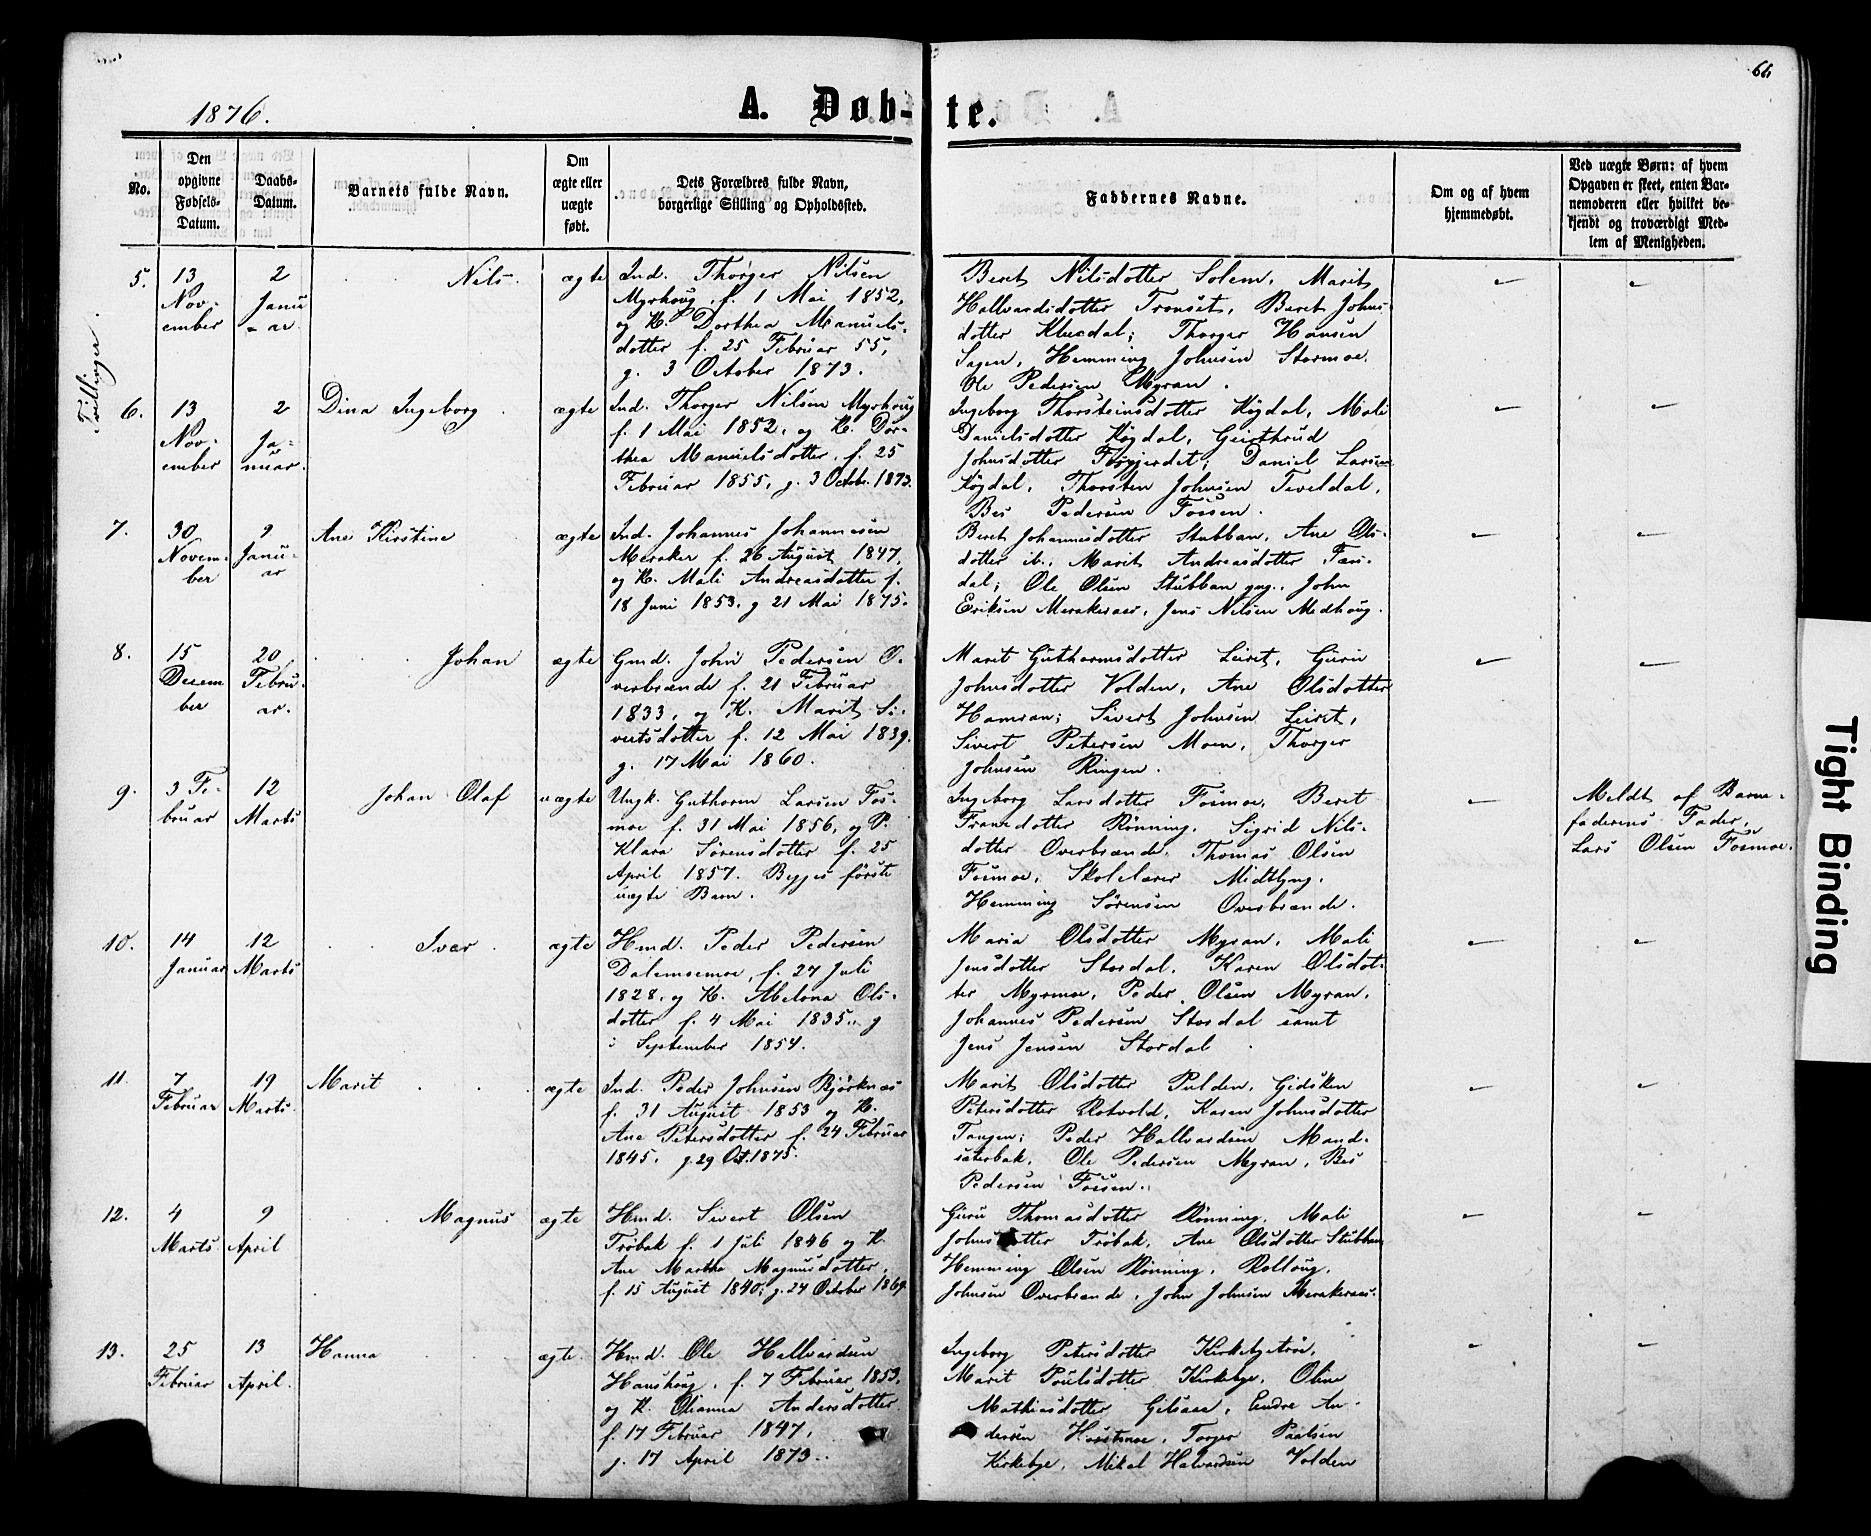 66
1876.
A. Døb-te.
No.
Den
opgivne
Fødsels-
Datum.
Daabs-
Datum.
Barnets fulde Navn.
Om
ægte eller
uægte
født.
Dets Forældres fulde Navn,
borgerlige Stilling og Opholdssted.
Faddernes Navne.
Om og af hvem
hjemmedøbt.
Ved uægte Børn: af hvem
Opgaven er skeet, enten Bar-
nemoderen eller hvilket be-
kjendt og troværdigt Med-
lem af Menigheden.
Tvillinger.
5.
13
Nov-
ember
2
Janu
-ar.
Nils
ægte
Ind. Thorger Nilsen
Myrhoug, f. 1 Mai 1852,
og K. Dorthea Manuels-
dotter f. 25 Februar 55,
g. 3 October 1873.
Beret Nilsdotter Solem, Marit
Hallvardsdotter Tronset, Beret Johns-
dotter Kluxdal; Thorger Hansen
Sagen, Hemming Johnsen Stormoe
Ole Pedersen Myran.
6.
13
Nov-
ember
2
Ja-
nuar.
Dina Ingeborg
ægte
Ind. Thorger Nilsen Myrhoug
f. 1 Mai 1852, og K. Dor-
thea Manuelsdotter, f. 25
Februar 1855, g. 3 Octb. 1873.
Ingeborg Thorsteinsdotter Kögdal, Mali
Danielsdotter Kögdal, Geirthrud
Johnsdotter; Daniel Larsen
Kögdal, Thorsten Johnsen Teveldal,
Bes Pedersen Fossen.
7.
30
Novem-
ber
9
Janu-
ar
Ane Kirstine
ægte
Ind. Johannes Johannesen
Meraker f. 26 August 1847,
og K. Mali Andreasdotter f.
18 Juni 1853. g 21 Mai 1875.
Beret Johannesdotter Stubban, Ane Ols-
dotter ib., Marit Andreasdotter Fær-
dal; Ole Olsen Stubban yng., John
Eriksen Merakeraas, Jens Nilsen Medhoug.
8.
15
Decem
ber
20
Febru-
ar.
Johan
ægte
Gmd. John Pedersen O-
verbrænde f. 21 Februar
1833, og K. Marit Si-
vertsdotter f. 12 Mai 1839.
g. 17 Mai 1860.
Marit Guthormsdotter Leiret, Guru
Johnsdotter Volden, Ane Olsdotter
Hamran; Sivert Johnsen Leiret,
Sivert Petersen Moen, Thorger
Johnsen Ringen.
9.
3 Fe-
bruar
12
Marts
Johan Olaf
uægte
Ungk. Guthorm Larsen Fos-
moe f. 31 Mai 1856, og P.
Klara Sørensdotter f. 25
April 1857. Begges første
uægte Barn.
Ingeborg Larsdotter Fosmoe, Beret
Fransdotter Rønning, Sigrid Nils-
dotter Overbrænde, Thomas Olsen
Fosmoe, Skolelærer Midtlyng,
Hemming Sørensen Overbrænde.
Meldt af Barne-
faderens Fader,
Lars Olsen Fosmoe.
10.
14
Januar
12
Marts
Ivar
ægte
Hmd. Peder Pedersen
Dalemoemoe, f. 27 Juli
1828, og K. Abelona Ols-
dotter f. 4 Mai 1835.. g
i September 1854.
Maria Olsdotter Myran, Mali
Jensdotter Stordal, Karen Olsdot-
ter Myrmoe, Peder Olsen Myran,
Johannes Pedersen Stordal samt
Jens Jensen Stordal
11.
7
Februar
19
Marts.
Marit
ægte
Ind. Peder Johnsen Bjørknæs
f. 31 August 1853 og K.
Ane Petersdotter f. 24 Februar
1845, g. 29 Oct. 1875.
Marit Olsdotter Pulden, Gidsken
Petersdotter Rotvold, Karen Johnsdotter
Tangen; Peder Hallvardsen Mand-
sæterbak, Ole Pedersen Myran, Bes
Pedersen Fossen.
12.
4
Marts
9
April
Magnus
ægte
Hmd. Sivert Olsen
Trøbak f. 1 Juli 1846 og K.
Ane Martha Magnusdotter,
f. 15 August 1840; g. 24 October 1869
Guru Thomasdotter Rønning, Mali
Johnsdotter Trøbak, Ane Olsdotter Stubban
Hemming Olsen Rønning, Rolloug
Johnsen Overbrænde, John Johnsen Merakeraas.
13.
25
Februar
13
April.
Hanna
ægte.
Hmd. Ole Hallvardsen
Hanshoug, f. 7 Februar 1853,
og K. Olianna Andersdotter
f. 17 Februar 1847,
g. 17 April 1873..
Ingeborg Petersdotter Kirkebytrø,
Marit Poulsdotter Kirkebye, Oline
Mathiasdotter Gilsaae, Endre An-
dersen, Torger Paalsen
Kirkebye, Mikal Halvardsen Volden
Tight Binding